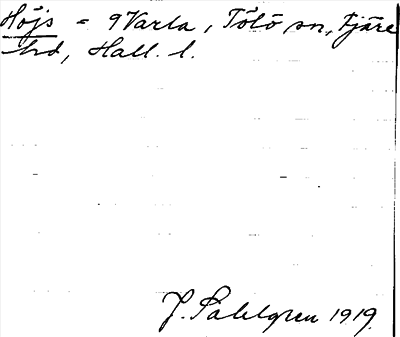 Höjs = 9 Varla, Tölö sn, Fjäre
hd, Hall. l.
J. Sahlgren 1919.